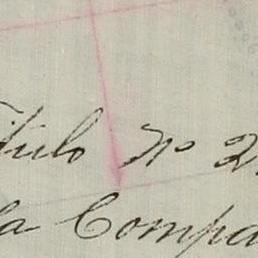 Título Nº 2
la Compa